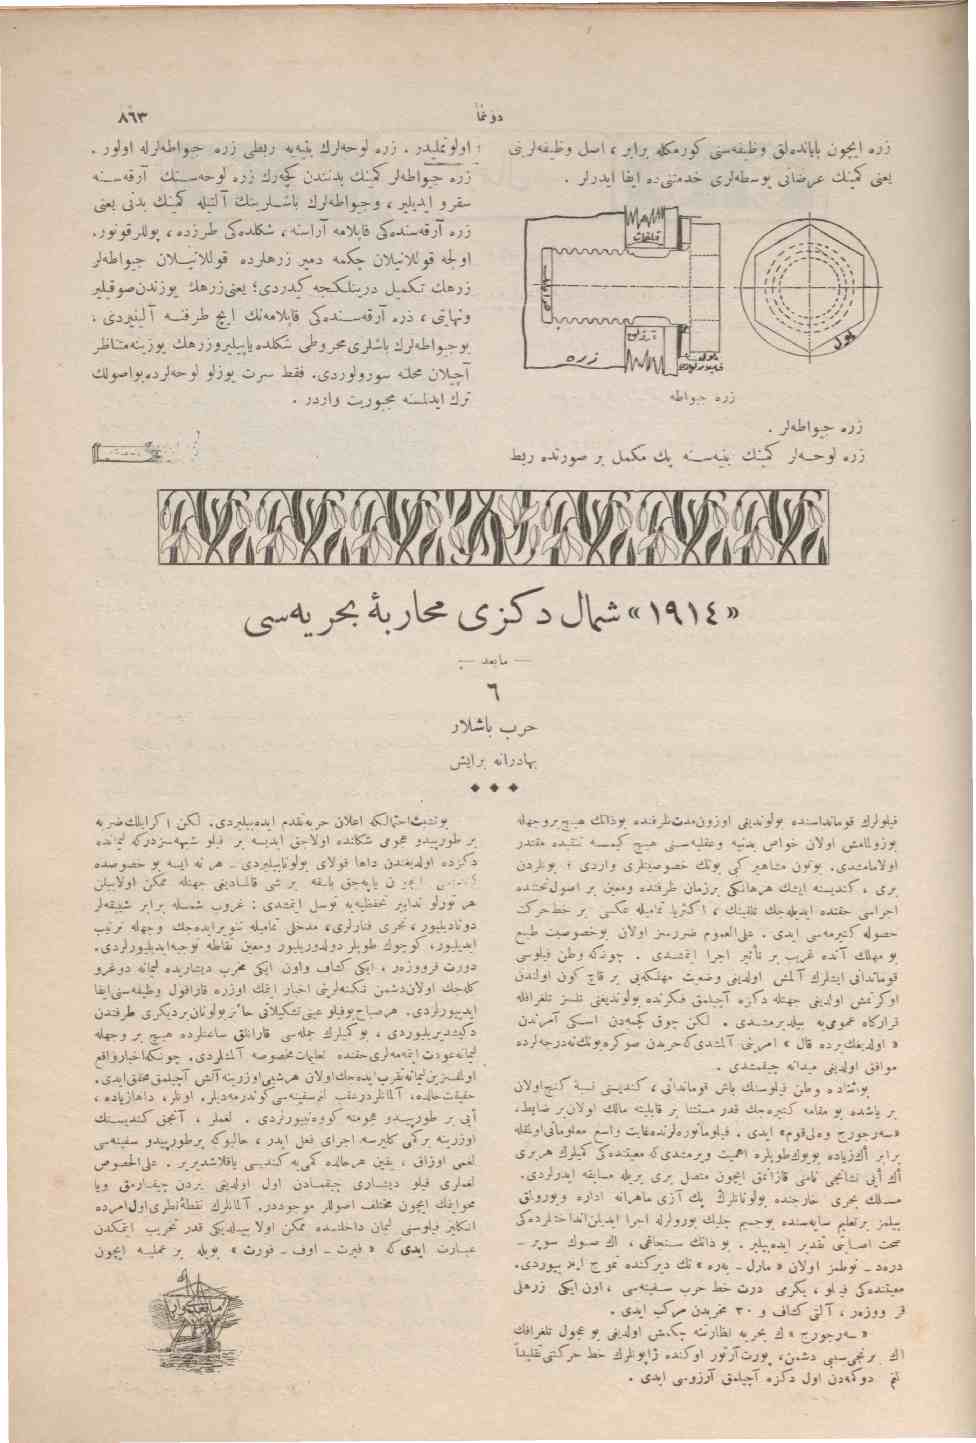 دوننما
٨٦٣
زره ایچون پایانده‌لق وظیفه‌سنی كورمكله برابر ، اصل وظیفه‌لرینی
یعنی كمینك عرضانی پوسطه‌لری خدمتنی ده ایفا ایدرلر .
زره
صومون
پول
زره جیواطه
زره جیواطه‌لر .
زره لوحه‌لر كمینك بنیه‌سنه پك مكمل بر صورتده ربط
اولونملیدر . زره لوحه‌لرك بنیه‌یه ربطی زره جیواطه‌لرله اولور .
زره جیواطه‌لر كمینك بدنندن كچه‌رك زره لوحه‌سنك آرقه‌سنه
سقرو ایدیلیر ، وجیواطه‌لرك باشلرینك آلتیله كمینك بدنی یعنی
زره آرقه‌سنده‌كی قاپلامه آراسنه ، شكلده‌كی طرزده ، پوللر قونور.
اولجه قوللانیلان چكمه دمیر زرهلرده قوللانیلان جیواطه‌لر
زرهك تكمیل درینلكنجه كیدردی؛ یعنی زرهك یوزندن صوقیلیر
ونهایتی ، زره آرقه‌سنده‌كی قاپلامه‌نك ایچ طرفنه آلینیردی .
بوجیواطه‌لرك باشلری مخروطی شكلده یاپیلیر وزرهك یوزینه متناظر
آچیلان محلنه سورولوردی. فقط سرت یوزلو لوحه‌لرده بواصولك
ترك ایدلمسنه مجبوریت واردر .
«١٩١٤» شمال دكزی محاربۀ بحریه‌سی
— مابعد —
٦
حرب باشلار
بهادرانه برایش
فیلولرك قومانداسنده بولوندیغی اوزون مدت ظرفنده بوذاتك هیچ بروجهله
بوزولمامش اولان خواص بدنیه وعقلیه‌سنی هیچ كیمسه تنقیده مقتدر
اولامامشدی. بوتون مشاهیر كبی بونك خصوصیتلری واردی ؛ بونلردن
بری ، كندیسنه ایشك هرهانكی برزمان ظرفنده ومعین بر اصول تحتنده
اجراسی حقنده ایدیله‌جك تلقینك ، اكثریا تمامیله عكسی بر خط حركت
حصوله كتیرمه‌سی ایدی . علی‌العموم ضررسز اولان بوخصوصیت طبع
بو مهلك آنده غریب بر تأثیر اجرا ایتمشدی . چونكه وطن فیلوسی
قوماندانی ایشلرك آلمش اولدیغی وضعیت مهلكه‌یی بر قاچ كون اولندن
اوكرنمش اولدیغی جهتله دكزه آچیلمق فكرنده بولوندیغنی تلسز تلغرافله
قراركاه عمومی‌یه بیلدیرمشدی . لكن چوق كچمه‌دن اسكی آمرندن
« اولدیغك یرده قال » امرینی آلمشدی كه حربدن صوكره بونك نه درجه‌لرده
موافق اولدیغی میدانه چیقمشدی .
بواثناده وطن فیلوسنك باش قوماندانی ، كندیسنی نسبةً كنج اولان
بر یاشده بو مقامه كتیره‌جك قدر مستثنا بر قابلیته مالك اولان بر ضابط،
«سه‌رجورج وه‌لی‌قوم» ایدی . فیلومانوره‌لرنده غایت واسع معلوماتی اولمقله
برابر اك زیاده بویوك طوپلره اهمیت ویرمشدی كه معیتنده‌كی كمیلرك هربری
اك أیی نشانجی نامنی قازانمق ایچون متصل بری بریله مسابقه ایدرلردی.
مسلك بحری خارجنده بولونانلرك پك آزی ماهرانه اداره ویورولق
بیلمز برتعلیم سایه‌سنده بوجسیم چلیك بورولرله اجرا ایدیلن انداختلرده‌كی
صحت اصابتی تقدیر ایده‌بیلیر . بو ذاتك سنجاغی ، اك صوك سوپر —
دره‌د — نوطمز اولان « مارل — بوره » نك دیركنده تموج ایدییوردی.
معیتنده‌كی فیلو ، یكرمی درت خط حرب سفینه‌سی ، اون ایكی زرهلی
قروووزه‌ر ، آلتی كشاف و ٣٠ مخربدن مركب ایدی .
« سه‌رجورج » ك بحریه نظارتنه چكمش اولدیغی بو عجول تلغرافك
اك برنجی سببی دشمن، پورت‌آرتور اوكنده ژاپونلرك خط حركتنی تقلیداً
دوكمه‌دن اول دكزه آچیلمق آرزوسی ایدی .
بوتشبث احتمالكه اعلان حربه تقدم ایده‌بیلیردی. لكن اكر ایلك ضربه
بر طورپیدو هجومی شكلنده اولاجق ایدیسه بر فیلو شبهه‌سزدر كه لیمانده
دكزده اولدیغندن داها قولای بولونابیلیردی — هر نه ایسه بو خصوصده
یاپه‌جق باشقه بر شی قالمادیغی جهتله ممكن اولابیلن
هر تورلو تدابیر تحفظیه‌یه توسل ایتمشدی : غروب شمسله برابر شبكه‌لر
دوناديليور ، بحری فنارلری، مدخلی تمامیله تنویر ایده‌جك وجهله ترتیب
ایدیلیور، كوچوك طوپلر دولدوریلیور ومعین نقاطه توجیه ایدیلیورلردی.
دورت قرووزه‌ر ، ایكی كشاف واون ایكی مخرب دیشاریده لیمانه دوغرو
كله‌جك اولان دشمن تكنه‌لرینی اخبار ایتمك اوزره قاراقول وظیفه‌سنی ایفا
ایدییورلردی. هرصباح بوفیلو عینی تشكیلاتی حائز بولونان بردیكری طرفندن
دكیشدیریلیوردی ، بو كمیلرك جمله‌سی قارانلق ساعتلرده هیچ بر وجهله
لیمانه عودت ایتمه‌مه‌لری حقنده تعلیمات مخصوصه آلمشلردی. چونكه اخبار واقع
اولمقسزین لیمانه تقرب ایده‌جك اولان هرشیئی اوزرینه آتش آچیلمق محقق ایدی.
حقیقت حالده، آلمانلر درعقب لغم سفینه‌سی كوندرمه‌دیلر. اونلر، داهازیاده ،
آنی بر طورپیدو هجومنه كووه‌نییورلردی . لغملر ، آنجق كندیسنك
اوزرینه بركمی كلیرسه اجرای فعل ایدر ، حالبوكه برطورپیدو سفینه‌سی
لغمی اوزاق ، یقین هرحالده كمی‌یه كندیسی یاقلاشدیریر . علی‌الخصوص
لغملری فیلو دیشاری چیقمادن اول اولدیغی یردن چیقارمق ویا
محوایتمك ایچون مختلف اصوللر موجوددر. آلمانلرك نقطۀ نظری اول امرده
انكلیز فیلوسنی لیمان داخلنده ممكن اولابیلدیكی قدر تخریب ایتمكدن
عبارت ایدی كه « فیرت — اوف — فورث » بویله بر عملیه ایچون
مابعدی وار